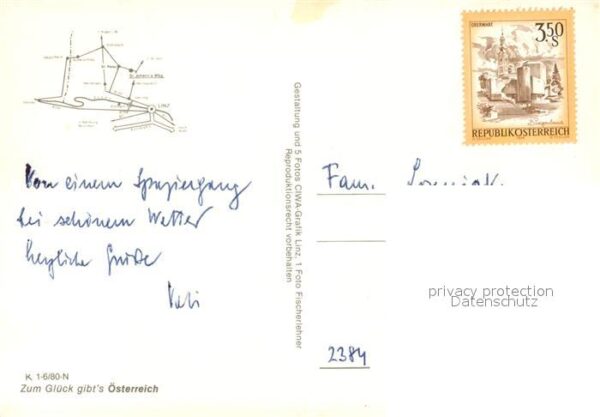 St. Johann a. Wbg.
LINZ
Von einem Spaziergang
bei schönem Wetter
herzliche Grüße
K 1-6/80-N
Zum Glück gibt's Österreich
Gestaltung und 5 Fotos CIWA-Grafik Linz, 1 Foto Fischerlehner
Reproduktionsrecht vorbehalten
OBERWART
3,50
S
REPUBLIK ÖSTERREICH
Fam.
privacy protection
Datenschutz
2384